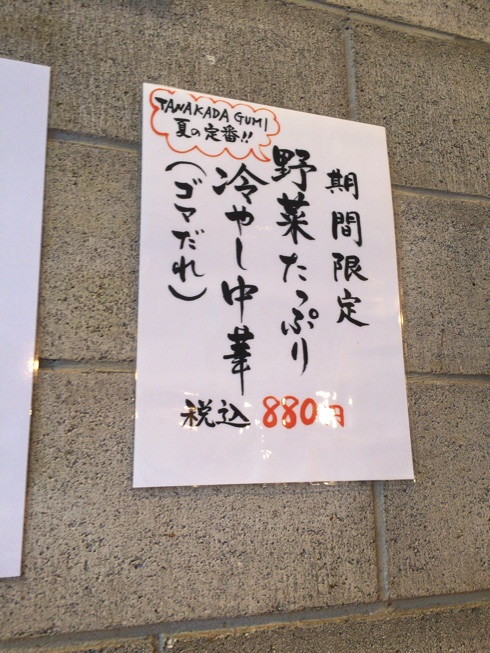 TANAKADA GUMI
夏の定番!!
期間限定
野菜たっぷり
冷やし中華
(ゴマだれ)
税込 880円